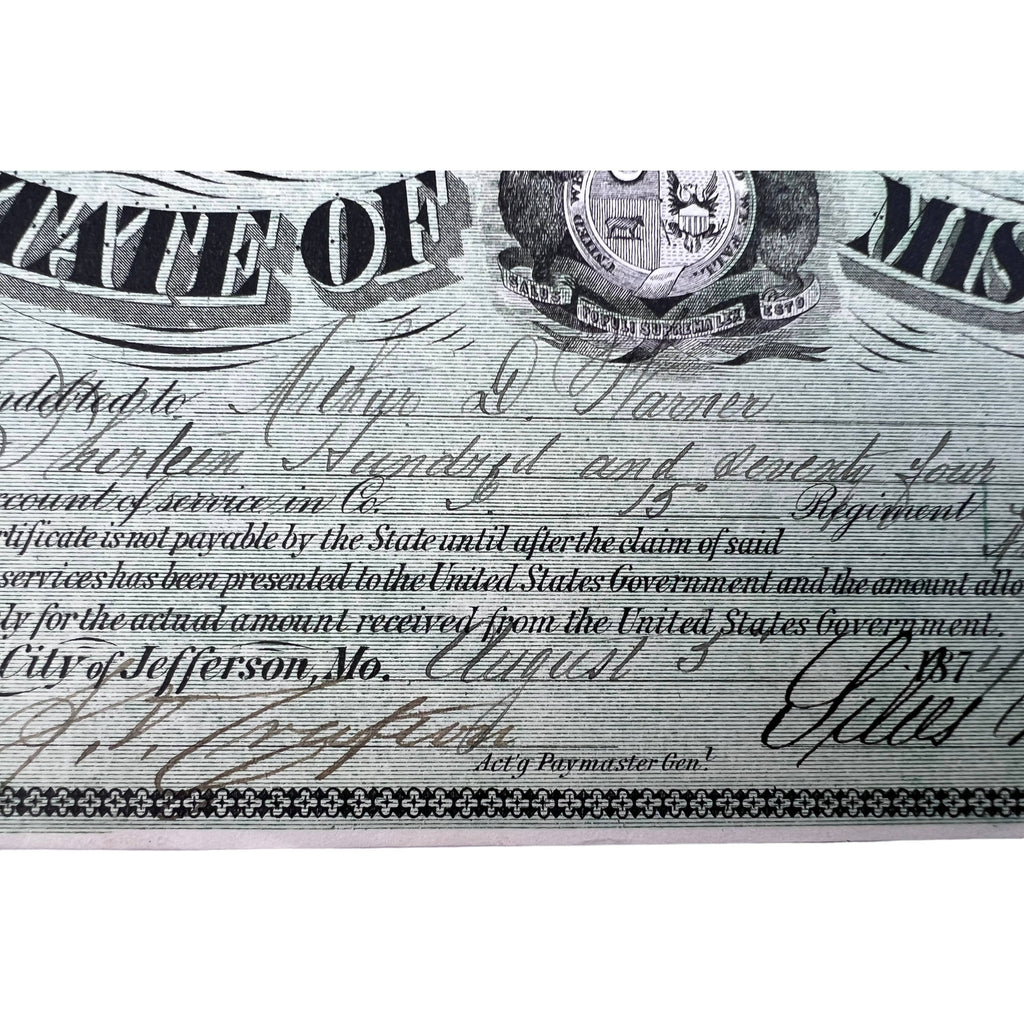 STATE OF MIS
UNITED WE FALL
SALUS POPULI SUPREMA LEX ESTO
ndebted to Arthur D. Warner
Thirteen Hundred and Seventy four
ccount of service in Co. 15 Regiment
rtificate is not payable by the State until after the claim of said
services has been presented to the United States Government and the amount allo
ly for the actual amount received from the United States Government.
City of Jefferson, Mo. August 3 1874
Silas
Act'g Paymaster Gen!